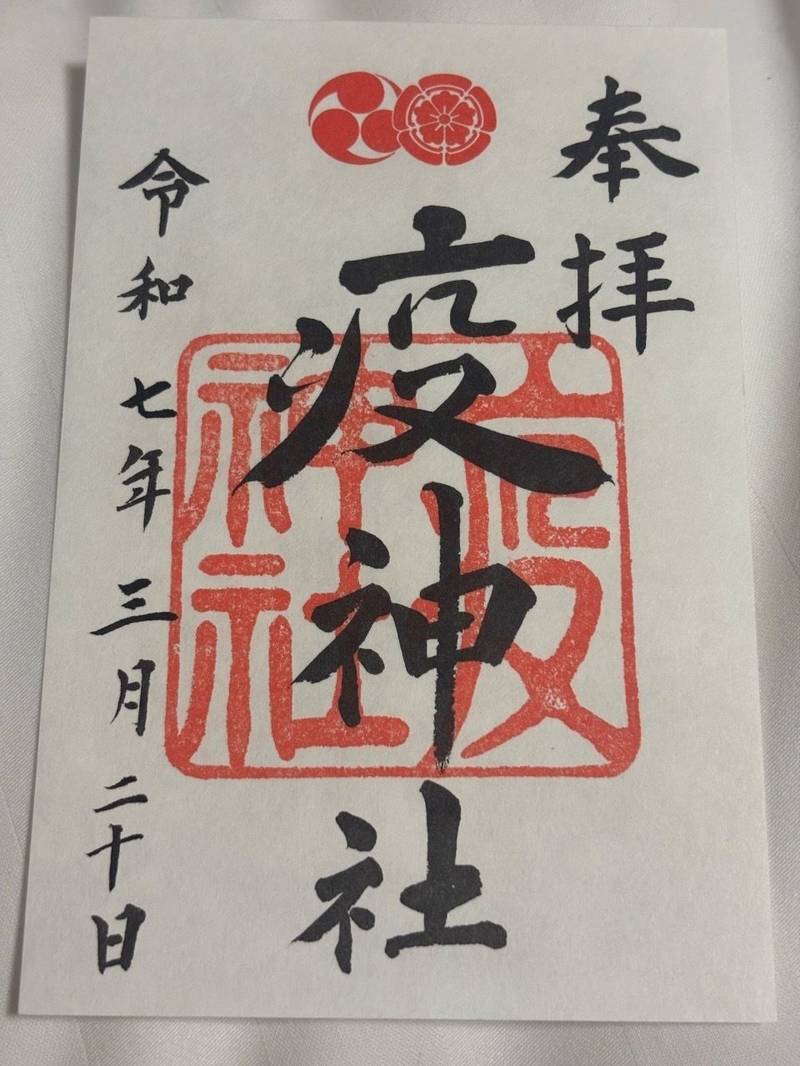 奉拝
疫神社
疫神社
令和七年三月二十日